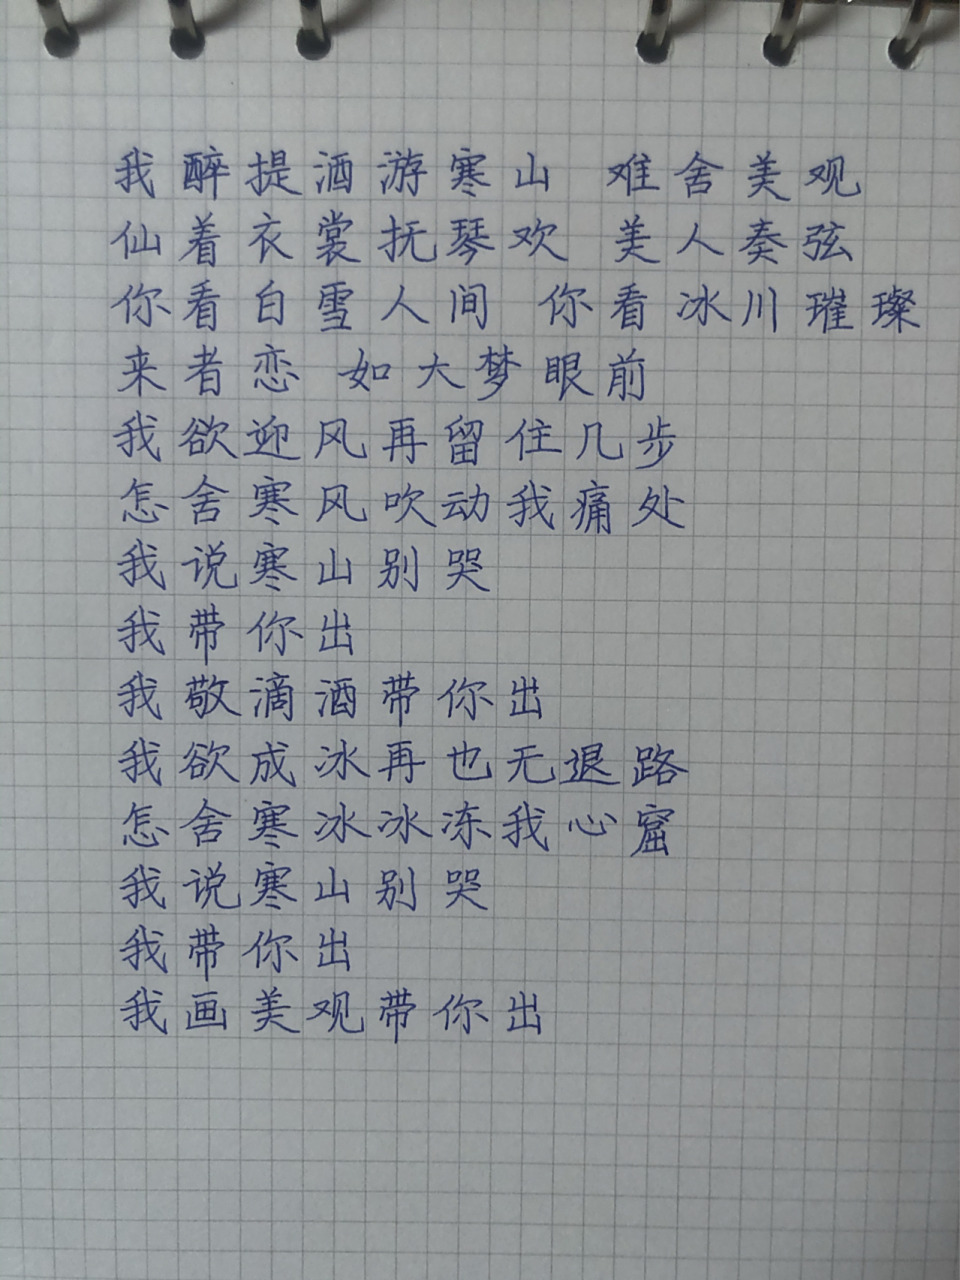 我醉提酒游寒山 难舍美观
仙着衣裳抚琴欢 美人奏弦
你看白雪人间 你看冰川璀璨
来者恋 如大梦眼前
我欲迎风再留住几步
怎舍寒风吹动我痛处
我说寒山别哭
我带你出
我敬滴酒带你出
我欲成冰再也无退路
怎舍寒冰冰冻我心窟
我说寒山别哭
我带你出
我画美观带你出